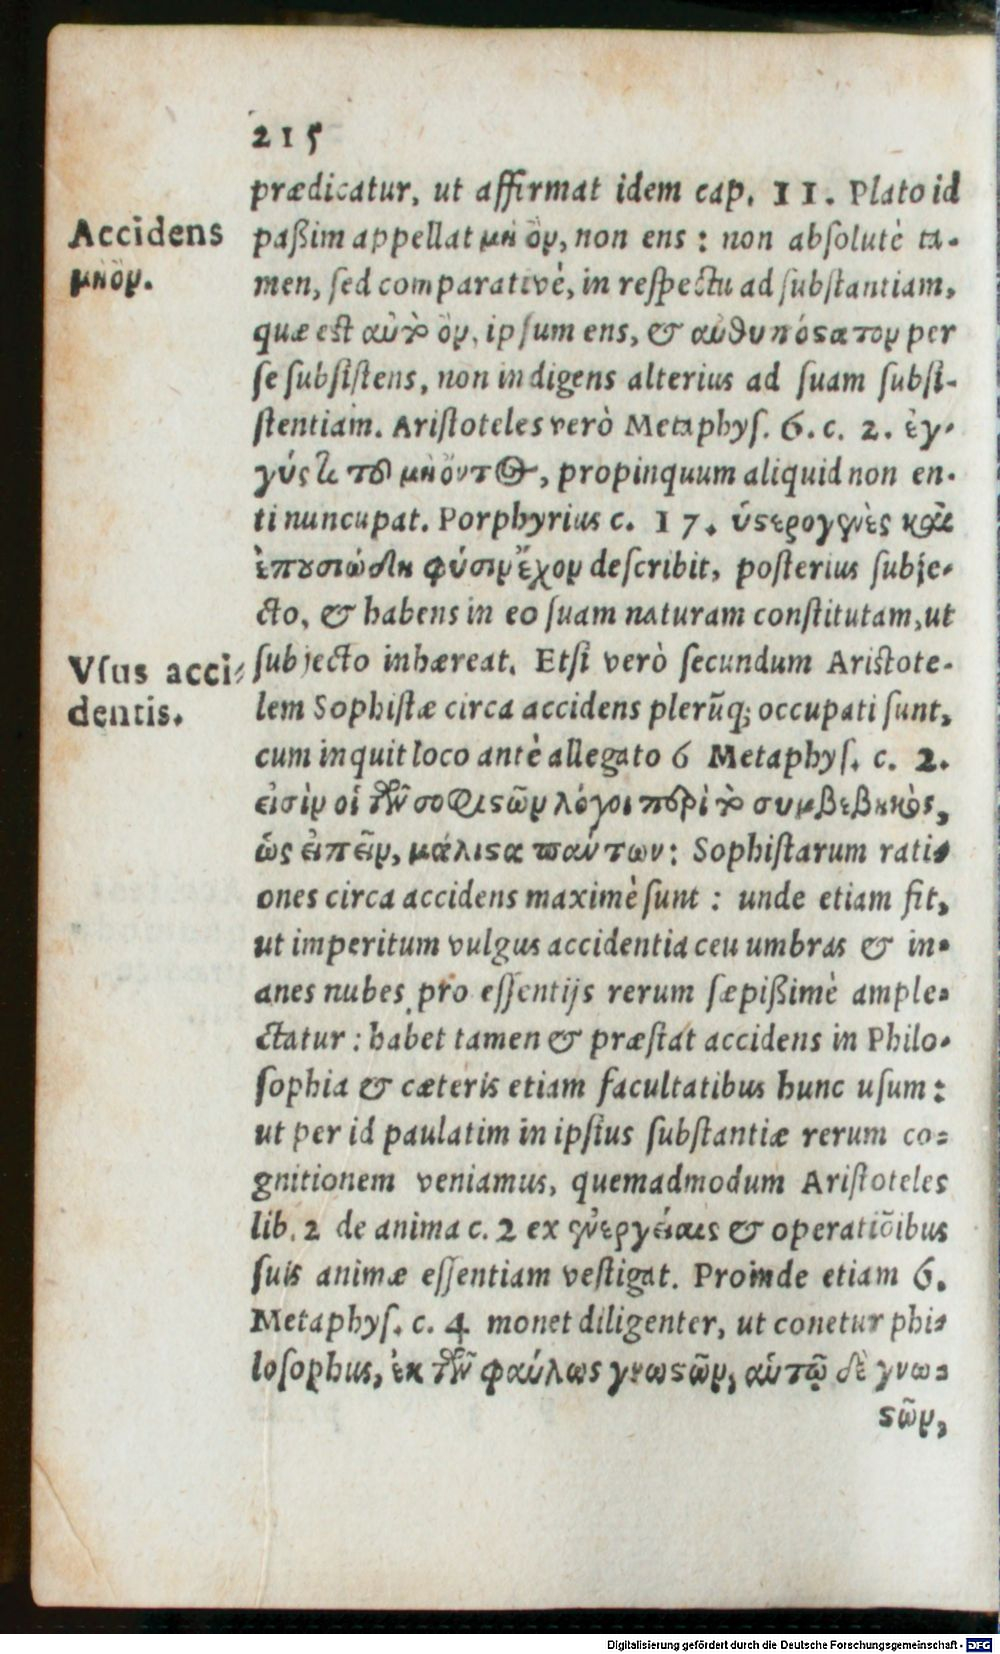 215
prædicatur, ut affirmat idem cap. 11. Plato id
Accidens
μὴ ὄν.
paßim appellat μὴ ὂν, non ens : non absolutè ta-
men, sed comparativè, in respectu ad substantiam,
quæ est αὐτὸ ὂν, ipsum ens, & αὐθυπόστατον per
se subsistens, non indigens alterius ad suam subsi-
stentiam. Aristoteles verò Metaphys. 6. c. 2. ἐγ-
γύς τι τοῦ μὴ ὄντος, propinquum aliquid non en-
ti nuncupat. Porphyrius c. 17. ὑστερογενὲς καὶ
ἐπουσιώδη φύσιν ἔχον describit, posterius subje-
cto, & habens in eo suam naturam constitutam, ut
Vsus acci-
dentis.
subjecto inhæreat. Etsi verò secundum Aristote-
lem Sophistæ circa accidens plerũq; occupati sunt,
cum inquit loco antè allegato 6 Metaphys. c. 2.
εἰσὶν οἱ τῶν σοφιστῶν λόγοι περὶ τὸ συμβεβηκὸς,
ὡς εἰπεῖν, μάλιστα πάντων: Sophistarum rati-
ones circa accidens maximè sunt : unde etiam fit,
ut imperitum vulgus accidentia ceu umbras & in-
anes nubes pro essentijs rerum sæpißimè ample-
ctatur : habet tamen & præstat accidens in Philo-
sophia & cæteris etiam facultatibus hunc usum :
ut per id paulatim in ipsius substantiæ rerum co-
gnitionem veniamus, quemadmodum Aristoteles
lib. 2 de anima c. 2 ex ἐνεργείαις & operatiõibus
suis animæ essentiam vestigat. Proinde etiam 6.
Metaphys. c. 4 monet diligenter, ut conetur phi-
losophus, ἐκ τῶν φαύλως γνωστῶν, αὑτῷ δὲ γνω-
στῶν,
Digitalisierung gefördert durch die Deutsche Forschungsgemeinschaft - DFG